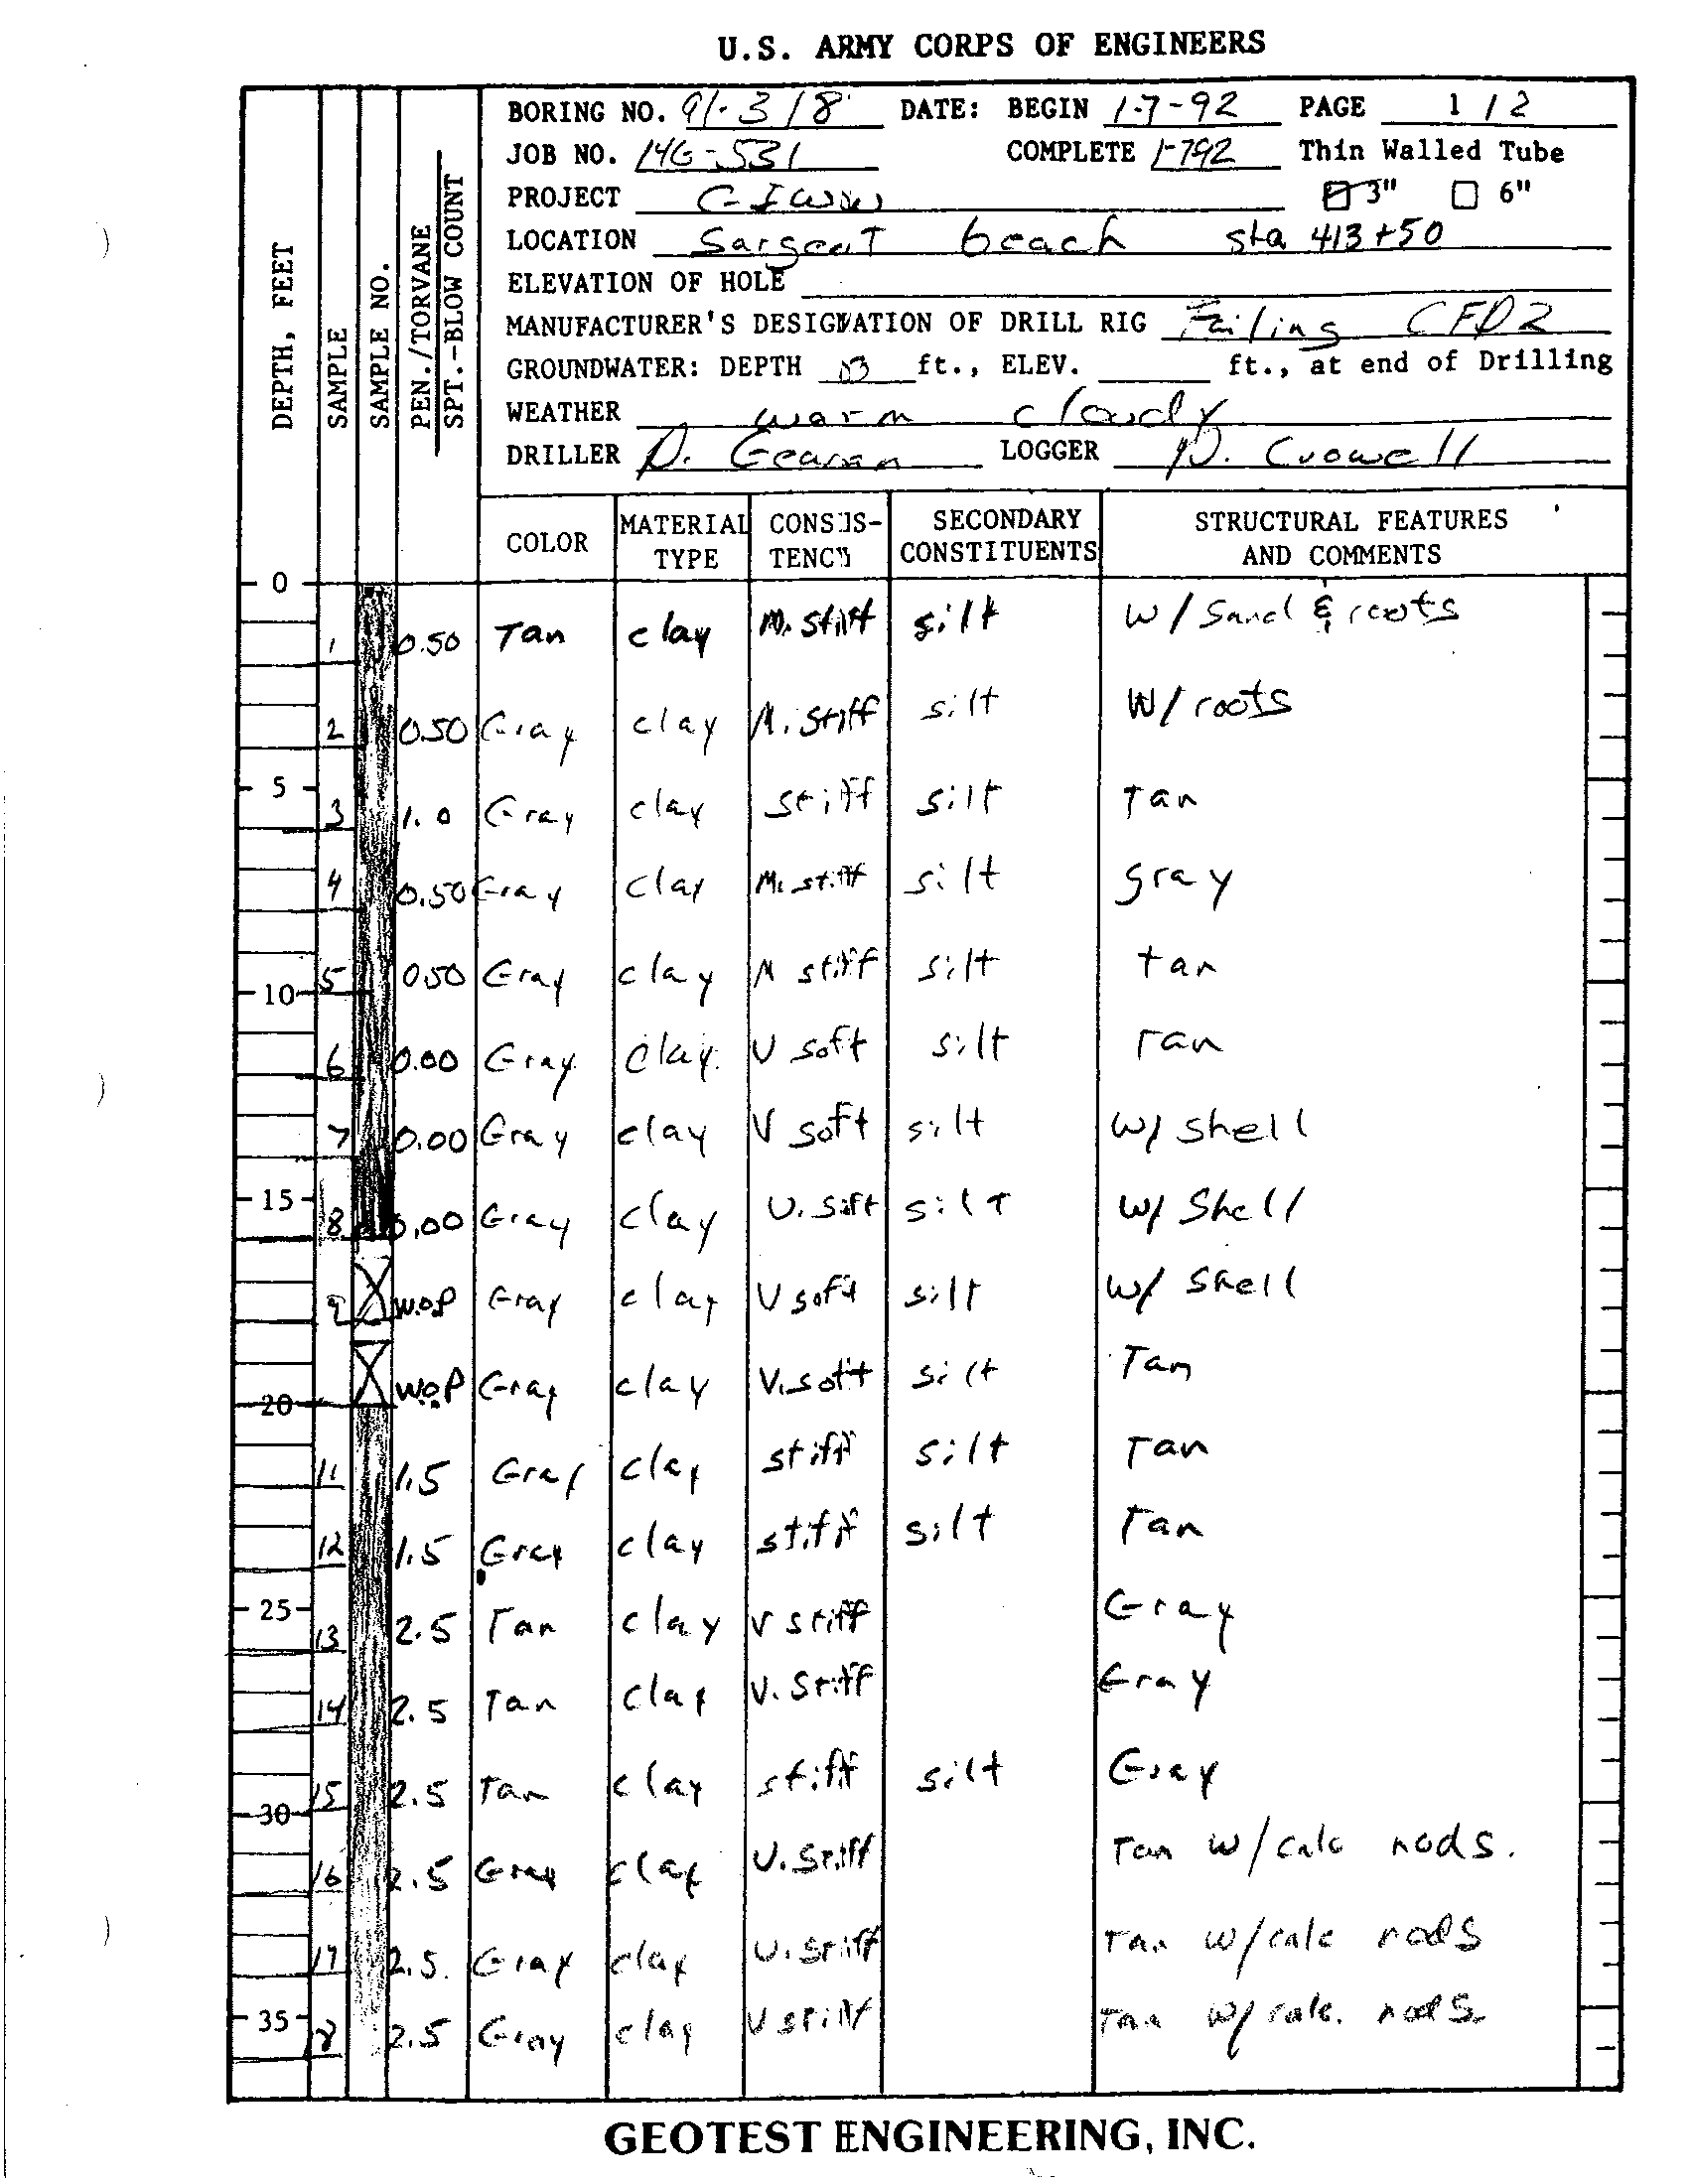 U.S. ARMY CORPS OF ENGINEERS
BORING NO. 91-318 DATE: BEGIN 1-7-92 PAGE 1/2
JOB NO. 14G-531 COMPLETE 1-792 Thin Walled Tube
PROJECT GIWW 3" 6"
LOCATION Sargent beach sta 413+50
ELEVATION OF HOLE
MANUFACTURER'S DESIGNATION OF DRILL RIG Failing CFD2
GROUNDWATER: DEPTH ft., ELEV. ft., at end of Drilling
WEATHER warm cloudy
DRILLER D. LOGGER D. Crowell
DEPTH, FEET
SAMPLE
SAMPLE NO.
PEN./TORVANE
SPT.-BLOW COUNT
COLOR MATERIAL TYPE CONSISTENCY SECONDARY CONSTITUENTS STRUCTURAL FEATURES AND COMMENTS
0
1 0.50 Tan clay M. stiff silt W/ Sand & roots
2 0.50 Gray clay M. Stiff silt W/ roots
5
3 1.0 Gray clay stiff silt Tan
4 0.50 Gray clay M. stiff silt gray
5 0.50 Gray clay M stiff silt tan
10
6 0.00 Gray clay V soft silt Tan
7 0.00 Gray clay V soft silt W/ shell
15
8 0.00 Gray clay V. soft silt W/ Shell
9 W.O.P Gray clay V soft silt W/ Shell
W.O.P Gray clay V. soft silt Tan
20
11 1.5 Gray clay stiff silt Tan
12 1.5 Gray clay stiff silt Tan
25
13 2.5 Tan clay V stiff Gray
14 2.5 Tan clay V. Stiff Gray
15 2.5 Tan clay stiff silt Gray
30
16 2.5 Gray clay V. Stiff Tan w/ calc nods.
17 2.5 Gray clay V. Stiff Tan w/ calc nods
35
18 2.5 Gray clay V stiff Tan w/ calc. nods.
GEOTEST ENGINEERING, INC.